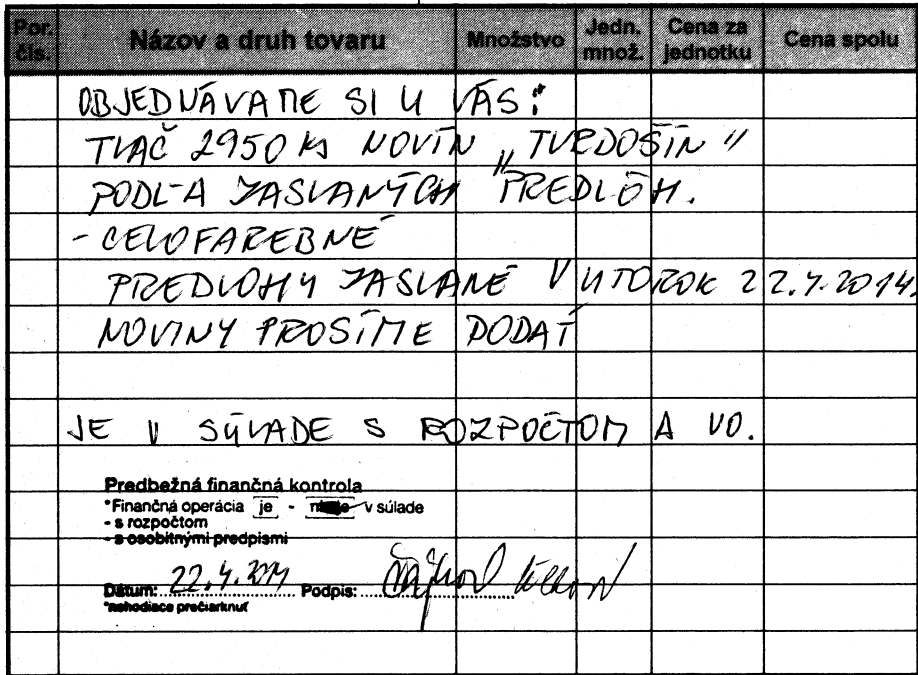 Por. čís. Názov a druh tovaru Množstvo Jedn. množ. Cena za jednotku Cena spolu
OBJEDNÁVAME SI U VÁS:
TLAČ 2950 ks NOVÍN „TVRDOŠÍN"
PODĽA ZASLANÝCH PREDLÔH.
- CELOFAREBNÉ
PREDLOHY ZASLANÉ V UTOROK 22.4.2014.
NOVINY PROSÍME DODAŤ
JE V SÚLADE S ROZPOČTOM A VO.
Predbežná finančná kontrola
*Finančná operácia je - nie je v súlade
- s rozpočtom
- s osobitnými predpismi
Dátum: 22.4.2014 Podpis:
*nehodiace prečiarknuť